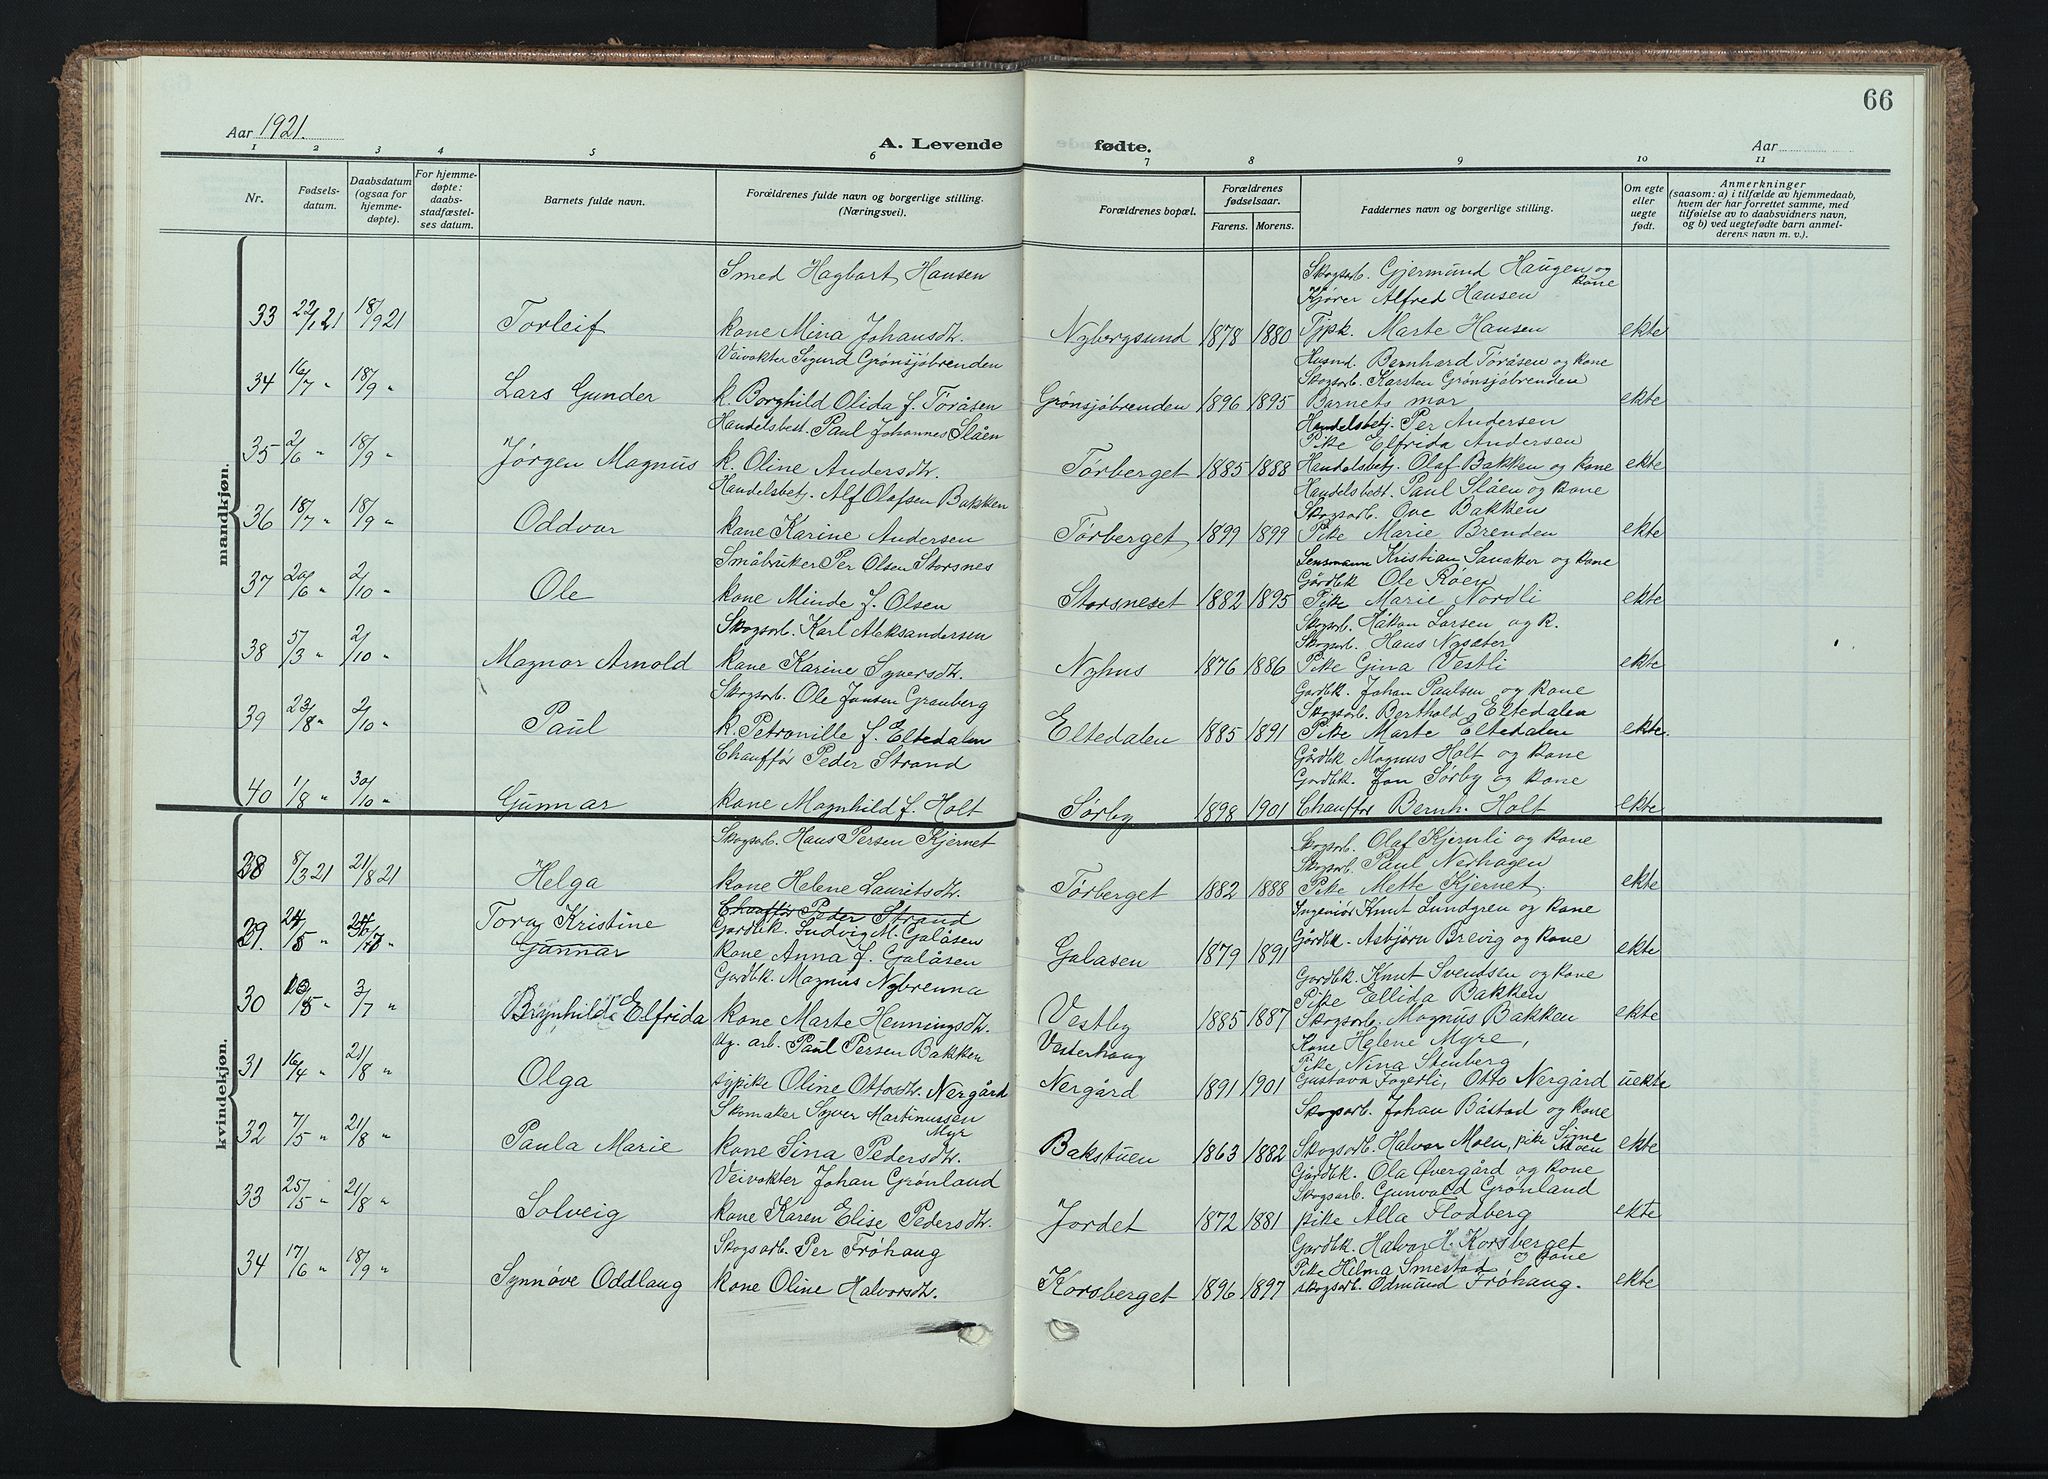 66
Aar 1921.
A. Levende fødte.
Aar
1 2 3 4 5 6 7 8 9 10 11
Nr.
Fødsels-datum.
Daabsdatum (ogsaa for hjemme-døpte).
For hjemme-døpte: daabs-stadfæstel-ses datum.
Barnets fulde navn.
Forældrenes fulde navn og borgerlige stilling. (Næringsvei).
Forældrenes bopæl.
Forældrenes fødselsaar.
Farens. Morens.
Faddernes navn og borgerlige stilling.
Om egte eller uegte født.
Anmerkninger
(saasom: a) i tilfælde av hjemmedaab, hvem der har forrettet samme, med tilføielse av to daabsvidners navn, og b) ved uegtefødte barn anmel-derens navn m. v.).
mandkjøn.
Smed Hagbart Hansen Skogsarb. Gjermund Haugen og kone
Kjører Alfred Hansen
33 22/1 21 18/9 21 Torleif kone Mina Johansdtr. Nybergsund 1878 1880 Tjpk. Marte Hansen ekte
Veivokter Sigurd Grønsjøbrenden Husmd. Bernhard Toråsen og kone
Skogsarb. Karsten Grønsjøbrenden
34 16/7 " 18/9 " Lars Gunder k. Borghild Olida f. Toråsen Grønsjøbrenden 1896 1895 Barnets mor ekte
Handelsbest. Paul Johannes Slåen Handelsbetj. Per Andersen
Pike Elfrida Andersen
35 2/6 " 18/9 " Jørgen Magnus k. Oline Andersdtr. Tørberget 1885 1888 Handelsbetj. Olaf Bakken og kone ekte
Handelsbetj. Alf Olafsen Bakken Handelsbest. Paul Slåen og kone
Skogsarb. Ove Bakken
36 18/7 " 18/9 " Oddvar kone Karine Andersen Tørberget 1899 1899 Pike Marie Brenden ekte
Småbruker Per Olsen Storsnes Lensmann Kristian Sanaker og kone
Gårdbk Ole Røen
37 20/6 " 2/10 " Ole kone Minde f. Olsen Storsneset 1882 1895 Pike Marie Nordli ekte
Skogsarb. Karl Aleksandersen Skogsarb. Håkon Larsen og k.
Skogsarb. Hans Nysæter
38 5/3 " 2/10 " Magnar Arnold kone Karine Syversdtr. Nyhus 1876 1886 Pike Gina Vestli ekte
Skogsarb. Ole Jonsen Granberg Gardbk. Johan Paulsen og kone
Skogsarb. Berthold Eltedalen
39 23/8 " 2/10 " Paul k. Petronille f. Eltedalen Eltedalen 1885 1891 Pike Marte Eltedalen ekte.
Chauffør Peder Strand Gårdbk Magnus Holt og kone
Gardbk. Jon Sørby og kone
40 1/8 " 30/10 " Gunnar kone Magnhild f. Holt Sørby 1898 1901 Chauffør Bernh. Holt ekte
kvindekjøn.
Skogsarb. Hans Persen Kjernet Skogsarb. Olaf Kjernli og kone
Skogsarb. Paul Nerhagen
28 8/3 21 21/8 21 Helga kone Helene Lauritsdtr. Tørberget 1882 1888 Pike Mette Kjernet. ekte
Chauffør Peder Strand Ingeniør Knut Lundgren og kone
Tora Kristine Gardbk. Ludvig M. Galåsen
29. 24/5 " 7 " Gunnar kone Anna f. Galåsen Galåsen 1879 1891 Gårdbk. Asbjørn Brevig og kone ekte
Gardbk. Magnus Nybrenna Gardbk. Knut Svendsen og kone
Pike Ellida Bakken
30 /5 " 3/7 " Brynhild Elfrida kone Marte Henningsdtr. Vestby 1885 1887 Skogsarb. Magnus Bakken ekte
Ug. arb. Paul Persen Bakken Vesterhaug Kone Helene Myre,
Pike Nina Stenberg
31 16/4 " 21/8 " Olga sypike Oline Ottosdtr. Nergård Nergård 1891 1901 Gustava Fagerli, Otto Nergård uekte
Skomaker Syver Martinussen Myr Skogsarb. Johan Båstad og kone
32 7/5 " 21/8 " Paula Marie kone Sina Pedersdtr. Bakstuen 1863 1882 Skogsarb. Halvar Moen, pike Sine Moen ekte
Veivokter Johan Grønland Gårdbk. Ola Øvergård og kone
Skogsarb. Gunvald Grønland
33 25/5 " 21/8 " Solveig kone Karen Elise Pedersdtr. Jordet 1872 1881 pike Alla Flodberg ekte
Skogsarb. Per Frøhaug Gardbk. Halvor H. Korsberget og kone
Pike Helma Smestad
34 17/6 " 18/9 " Synnøve Oddlaug kone Oline Halvorsdtr. Korsberget 1896 1897 skogsarb. Odmund Frøhaug. ekte